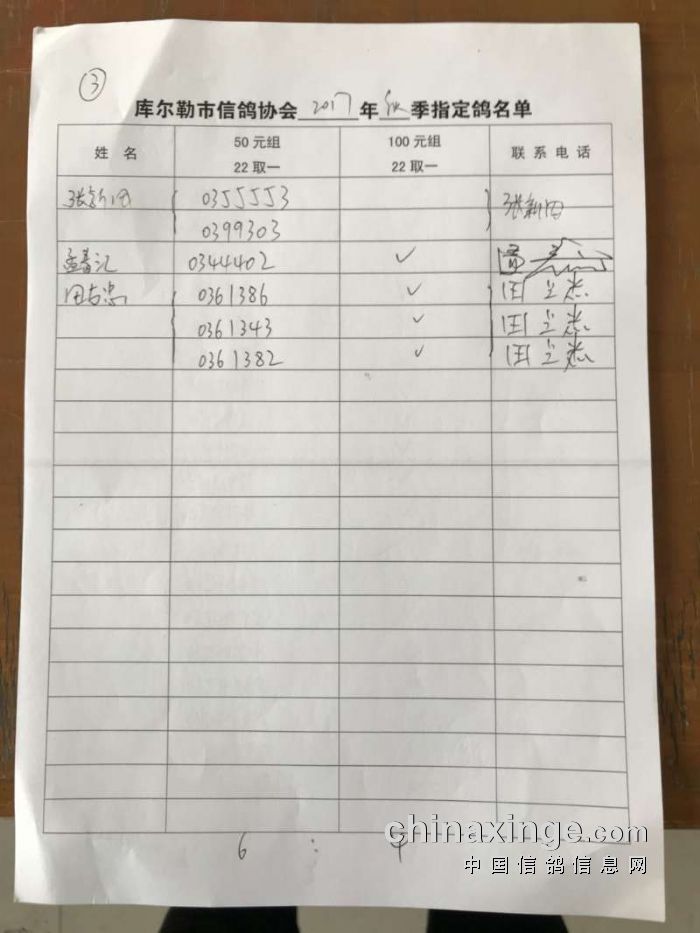 ③
库尔勒市信鸽协会 2017 年 秋 季指定鸽名单
姓 名 50元组 22取一 100元组 22取一 联 系 电 话
张新田 0355553 张新田
0399303
0344402 ✓
0361386 ✓ 田
0361343 ✓ 田
0361382 ✓ 田
6 : 4
chinaxinge.com
中国信鸽信息网